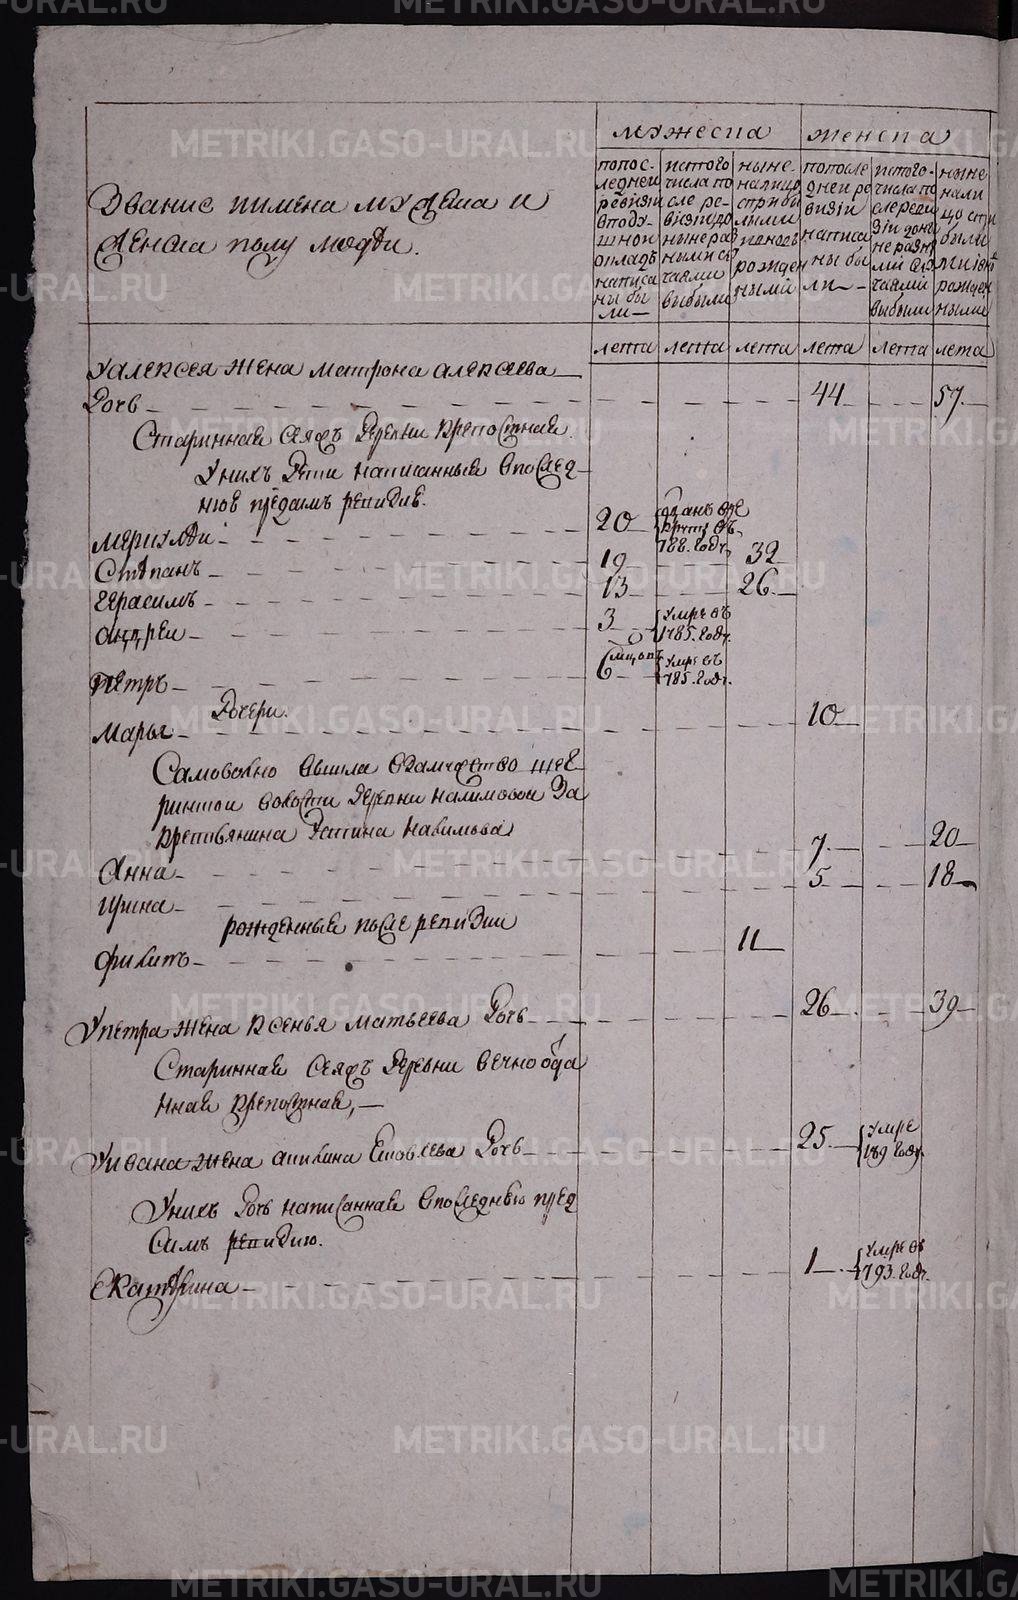 мужеска
женска
Звание и имена мужеска и
женска полу людей.
по пос-
ледней
ревизiи
в поду-
шной
окладъ
написа
ны бы
ли
из того
числа по
сле ре-
визiи до
ныне раз
ными слу
чаями
выбыли
ныне
налицо
с прибы
лыми
и вновь
рожден
ными
по после
дней ре
визiи
написа
ны бы
ли
из того
числа по
сле реви
зiи до
ныне разн
ми слу
чаями
выбыли
ныне
нали
цо с при
былы
ми и вно
рожден
ными
лета лета лета лета лета лета
У алексея жена матрона алексеева
Дочь 44 57
Стариннае сея жъ деревни крепостная
У нихъ дети написанныя в послед-
нюе пред симъ ревизие.
20 отданъ в ре
круты въ
788. годе,
Степанъ 19 32
герасимъ 13 26
андреи 3 умре въ
1785. годе.
Петръ 6 умре въ
785. годе.
Дочери.
Марья 10
Самовольно вышла в замужство
волости деревни налимовой за
крестьянина налимова
Анна 7 20
ирина 5 18
рожденные после ревизии
филипъ 11
У петра жена ксенья матвеева дочь 26 39
Стариннае сея жъ деревни вечно отда
нная крепостная,
У ивана жена акилина дочь 25 умре
789 годе.
У нихъ дочь написанная в последнею пред
Симъ ревизию.
Екатерина 1 умре въ
1793. годе.
METRIKI.GASO-URAL.RU